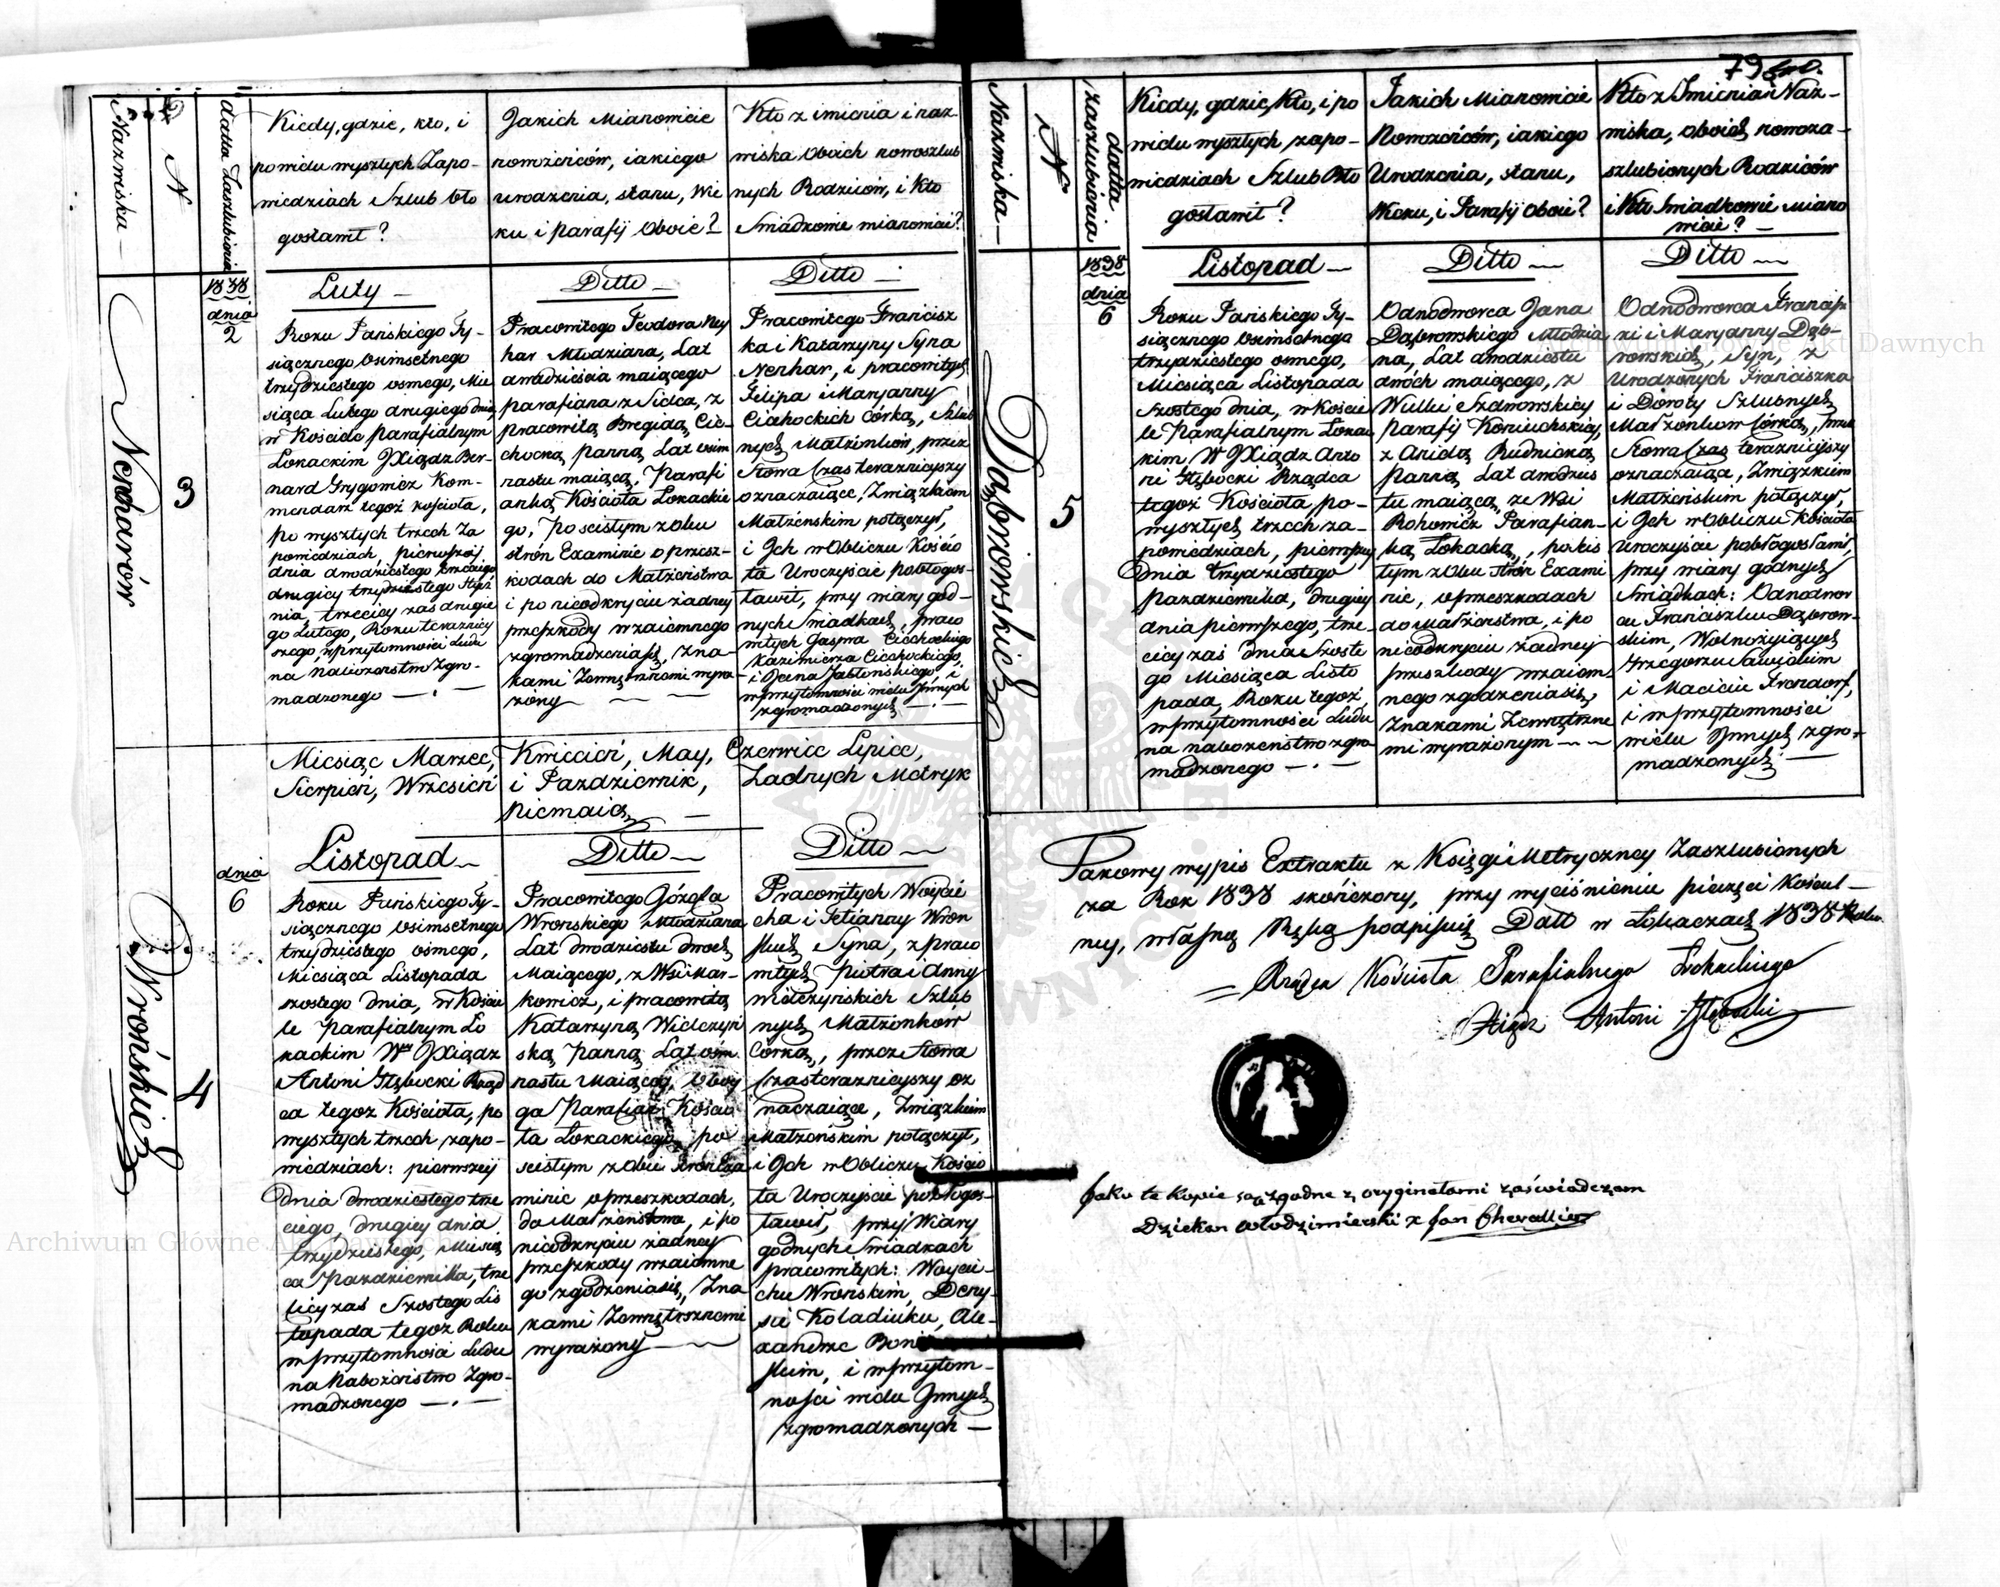 Nazwiska
N
datta Zaszlubienia
Kiedy, gdzie, kto, i
po wielu wyszłych Zapo-
wiedziach Szlub bło
gosławił?
Jakich Mianowicie
nowożeńców, iakiego
urodzenia, stanu, Wie
ku i parafij oboie?
Kto z imienia i naz-
wiska oboich nowoszlub
nych Rodziców, i Kto
Swiadkowie mianowicie?
Nerharów
3
1838
dnia
2
Luty
Roku Pańskiego Ty-
siącznego osimsetnego
trzydziestego osmego, Mie
siąca Lutego drugiego dnia
w Kościele parafialnym
Lokackim JXiądz Ber-
nard Grygowicz Kom-
mendarz tegoż kościoła,
po wyszłych trzech Za
powiedziach, pierwszej
dnia dwudziestego trzeciego
drugiey trzydziestego Stycz
nia, trzeciey zaś drugie
go Lutego, Roku terazniey
szego, w przytomności Ludu
na nabożenstwo zgro-
madzonego
Ditto
Pracowitego Teodora Ner
har Młodziana, Lat
dwadzieścia maiącego
parafiana z Sielca, z
pracowitą Bregidą Cie-
chocką panną Lat osim
nastu maiącą, Parafi
anką Kościoła Lokackie
go, po scisłym z obu
stron Examinie o przesz-
kodach do Małżeństwa
i po nieodkryciu żadney
przeszkody wzaiemnego
zgromadzenia się, zna-
kami Zewnętrznemi wyra-
żony
Ditto
Pracowitego Francisz
ka i Katarzyny Syna
Nerhar, i pracowitych
Felipa Maryanny
Ciehockich Córką, Szlub
nych Małżonków, przez
Słowa Czas teraznieyszy
oznaczaiące, Związkiem
Małżenskim połączył,
i Ich w Obliczu Kościo
ła Uroczyście pobłogos-
ławił, przy wiary god-
nych Swiadkach, praco
witych Gaspra Ciechockiego
Kazimierza Ciechockiego,
i Jozena Jabłońskiego, i
w przytomności wielu Innych
zgromadzonych
Miesiąc Marzec, Kwiecień, May, Czerwiec Lipiec,
Sierpień, Wrzesień i Pazdziernik, Zadnych Metryk
niemaią
Wrońskich
4
dnia
6
Listopad
Roku Pańskiego Ty-
siącznego osimsetnego
trzydziestego osmego,
Miesiąca Listopada
szostego dnia, w Koście
le Parafialnym Lo
kackim Wny JXiądz
Antoni Głębocki Rząd
ca tegoż Kościoła, po
wyszłych trzech zapo-
wiedziach: pierwszey
dnia dwudziestego trze
ciego, drugiey dnia
trzydziestego, Miesią
ca Pazdziernika, trze
ciey zaś Szostego Lis
topada tegoż Roku
w przytomności Ludu
na Nabożeństwo Zgro-
madzonego
Ditto
Pracowitego Józefa
Wrońskiego Młodziana
Lat dwudziestu dwoch
Maiącego, z Wsi Mar-
kowicz, i pracowitą
Katarzyną Wielczyń
ską panną Lat osim
nastu Maiącą, oboy
ga Parafian Kościo
ła Lokackiego, po
scisłym z obu stron Exa
minie o przeszkodach,
do Małżenstwa, i po
nieodkryciu żadney
przeszkody wzaiemne
go zgodzenia się, Zna
kami Zewnętrznemi
wyrażony
Ditto
Pracowitych Woycie
cha i Tetianny Wroń
skich Syna, z praco
witych Piotra i Anny
Wielczyńskich Szlub
nych Małżonkow
Córką, przez Słowa
Czas teraznieyszy oz
naczaiące, Związkiem
Małżonskim połączył,
i Ich w Obliczu Kościo
ła Uroczyście pobłogos-
ławił, przy Wiary
godnych Swiadkach
pracowitych: Woycie-
chu Wrońskim, Deny-
sie Koladiuku, Ale-
xandrze
skim, i w przytom-
ności wielu Innych
zgromadzonych
79
Nazwiska
N
datta
zaszlubienia
Kiedy, gdzie, Kto, i po
wielu wyszłych zapo-
wiedziach Szlub bło
gosławił?
Jakich Mianowicie
Nowożeńców, iakiego
Urodzenia, stanu,
Wieku, i Parafij Oboie?
Kto z Imienia i Naz-
wiska, oboich nowoza-
szlubionych Rodziców
i Kto Swiadkowie Miano
wicie?
Dąbrowskich
5
1838
dnia
6
Listopad
Roku Pańskiego Ty-
siącznego osimsetnego
trzydziestego osmego,
Miesiąca Listopada
szostego dnia, w Koście
le Parafialnym Lokac
kim, W JXiądz Anto
ni Głębocki Rządca
tegoż Kościoła po-
wyszłych trzech za-
powiedziach, pierwszey
dnia trzydziestego
pazdziernika, drugiey
dnia pierwszego, trze
ciey zaś dnia Szoste
go Miesiąca Listo
pada, Roku tegoż,
w przytomności Ludu
na nabożenstwo zgro
madzonego
Ditto
Odnodworca Jana
Dąbrowskiego Młodzia
na, Lat dwudziestu
dwóch maiącego, z
Wulki Szelwowskiey
parafij Koniuchskiey,
z Anielą Rudnicką
Panną Lat dwudzies
tu maiącą, ze Wsi
Rohowicz Parafian-
ką Lokacką, po scis
łym z obu stron Exami
nie, o przeszkodach
do Małżenstwa, i po
nieodkryciu żadney
przeszkody wzaiem-
nego zgodzenia się,
Znakami Zewnętrzne
mi wyrażonym
Ditto
Odnodworca Francisz
ki i Maryanny Dąb-
rowskich, Syn, z
Urodzonych Franciszka
i Doroty Szlubnych
Małżonkow Córką, przez
Słowa Czas teraznieyszy
oznaczaiące, Związkiem
Małżenskim połączył,
i Ich w Obliczu Kościoła
Uroczyście pobłogosławił,
przy wiary godnych
Swiadkach: Odnodwor
cu Franciszku Dąbrow-
skim, Wolnożyiących
Grzegorzu Sawickim
i Macieiu Frendorf,
i w przytomności
wielu Innych zgro-
madzonych
Takowy wypis Extraktu z Księgi Metryczney Zaszlubionych
za Rok 1838 skończony, przy wyciśnieniu pieczęci Kościel-
ney, własną Ręką podpisuię Datt w Lokaczach 1838 Roku
Rządca Kościoła Parafialnego Lokackiego
Xiądz Antoni Głębocki
Jako te kopie są zgodne z oryginałami zaświadczam
Dziekan włodzimierski x Jan Chevallier
Archiwum Główne Akt Dawnych
Archiwum Główne Akt Dawnych